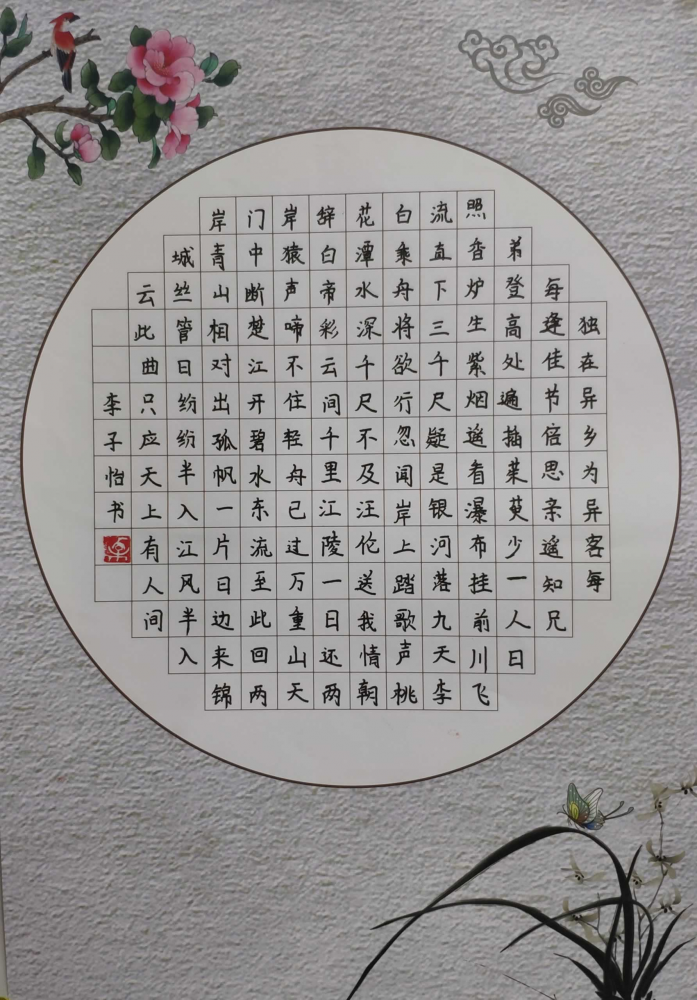 独在异乡为异客每
每逢佳节倍思亲遥知兄
弟登高处遍插茱萸少一人日
照香炉生紫烟遥看瀑布挂前川飞
流直下三千尺疑是银河落九天李
白乘舟将欲行忽闻岸上踏歌声桃
花潭水深千尺不及汪伦送我情朝
辞白帝彩云间千里江陵一日还两
岸猿声啼不住轻舟已过万重山天
门中断楚江开碧水东流至此回两
岸青山相对出孤帆一片日边来锦
城丝管日纷纷半入江风半入
云此曲只应天上有人间
李子怡书